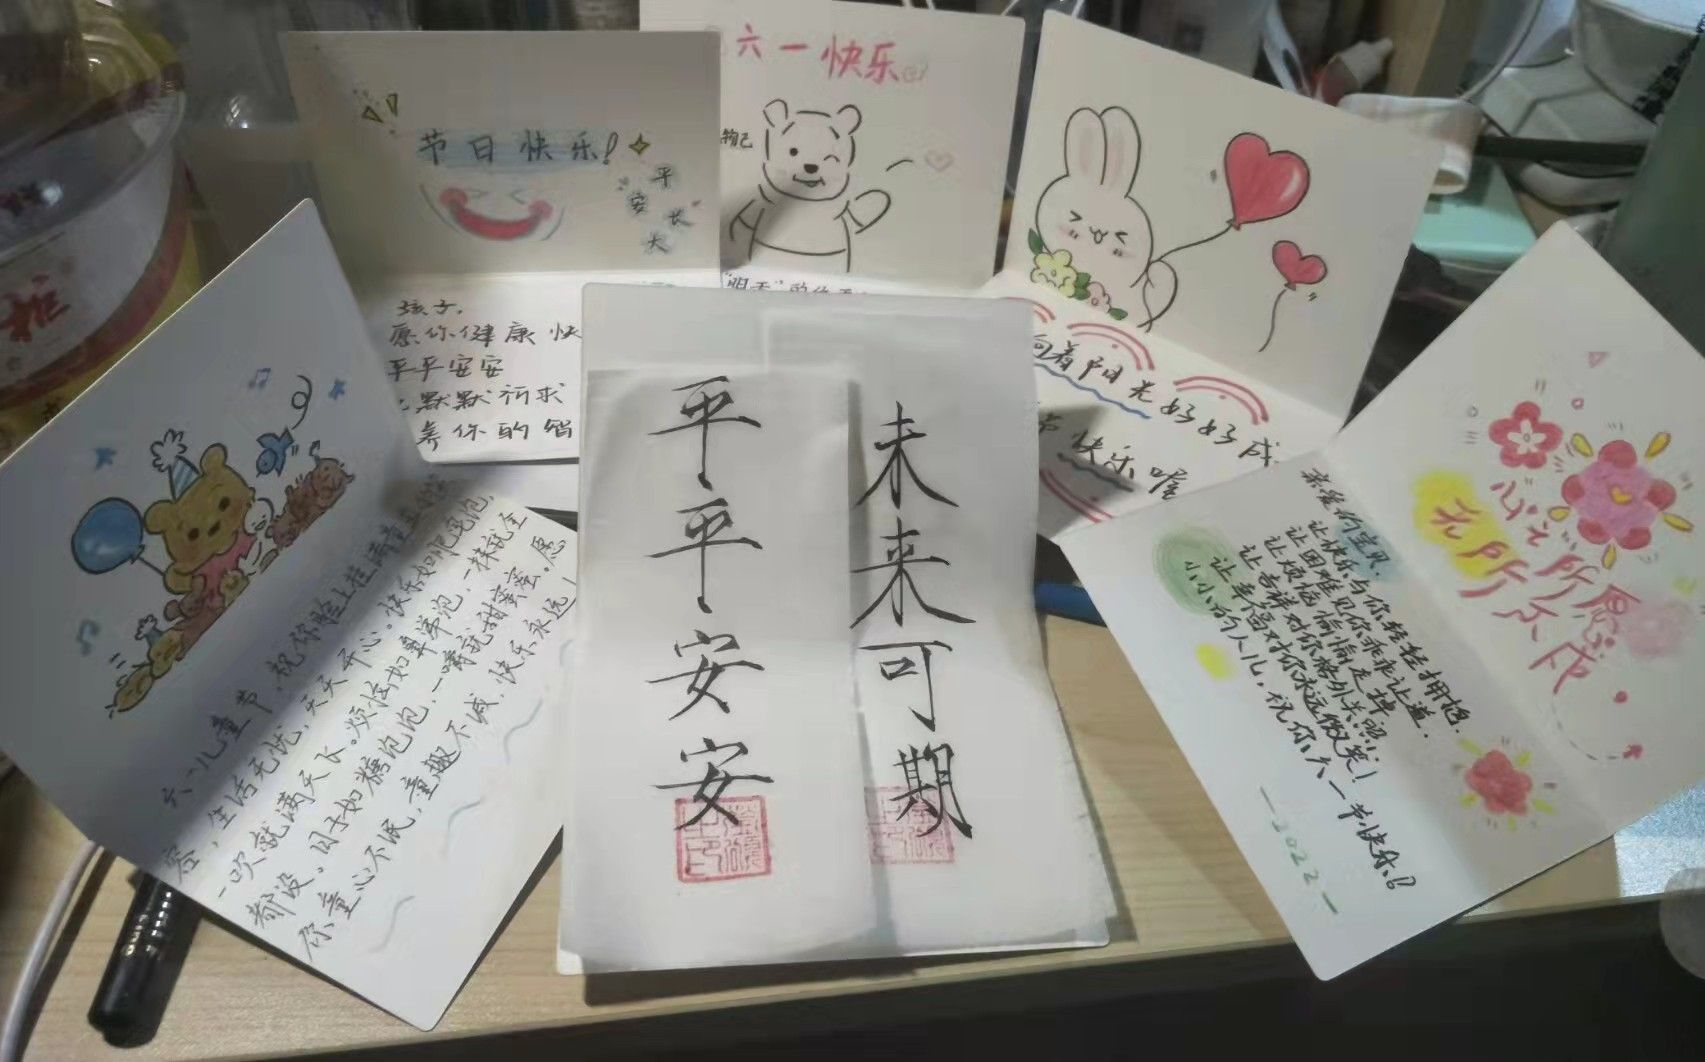 节日快乐!
平
安
长
大
孩子,
愿你健康快
平平安安
默默祈求
养你的
六一快乐
向着阳光好好成
快乐喔
平平安安
未来可期
六一儿童节,祝你脸上挂满童真
容,生活无忧,天天开心。快乐如肥皂泡,
一吹就满天飞。烦恼如鼻涕泡,一擦就全
都没。日子如糖泡泡,一嚼就甜蜜蜜。愿
你童心不泯,童趣不减,快乐永远!
心之所愿
无所不成
亲爱的宝贝,
让快乐与你轻轻拥抱,
让困难见你乖乖让道。
让烦恼偷偷走掉,
让吉祥对你格外关照,
让幸福对你永远微笑!
小小的人儿,祝你六一节快乐!
—2022—